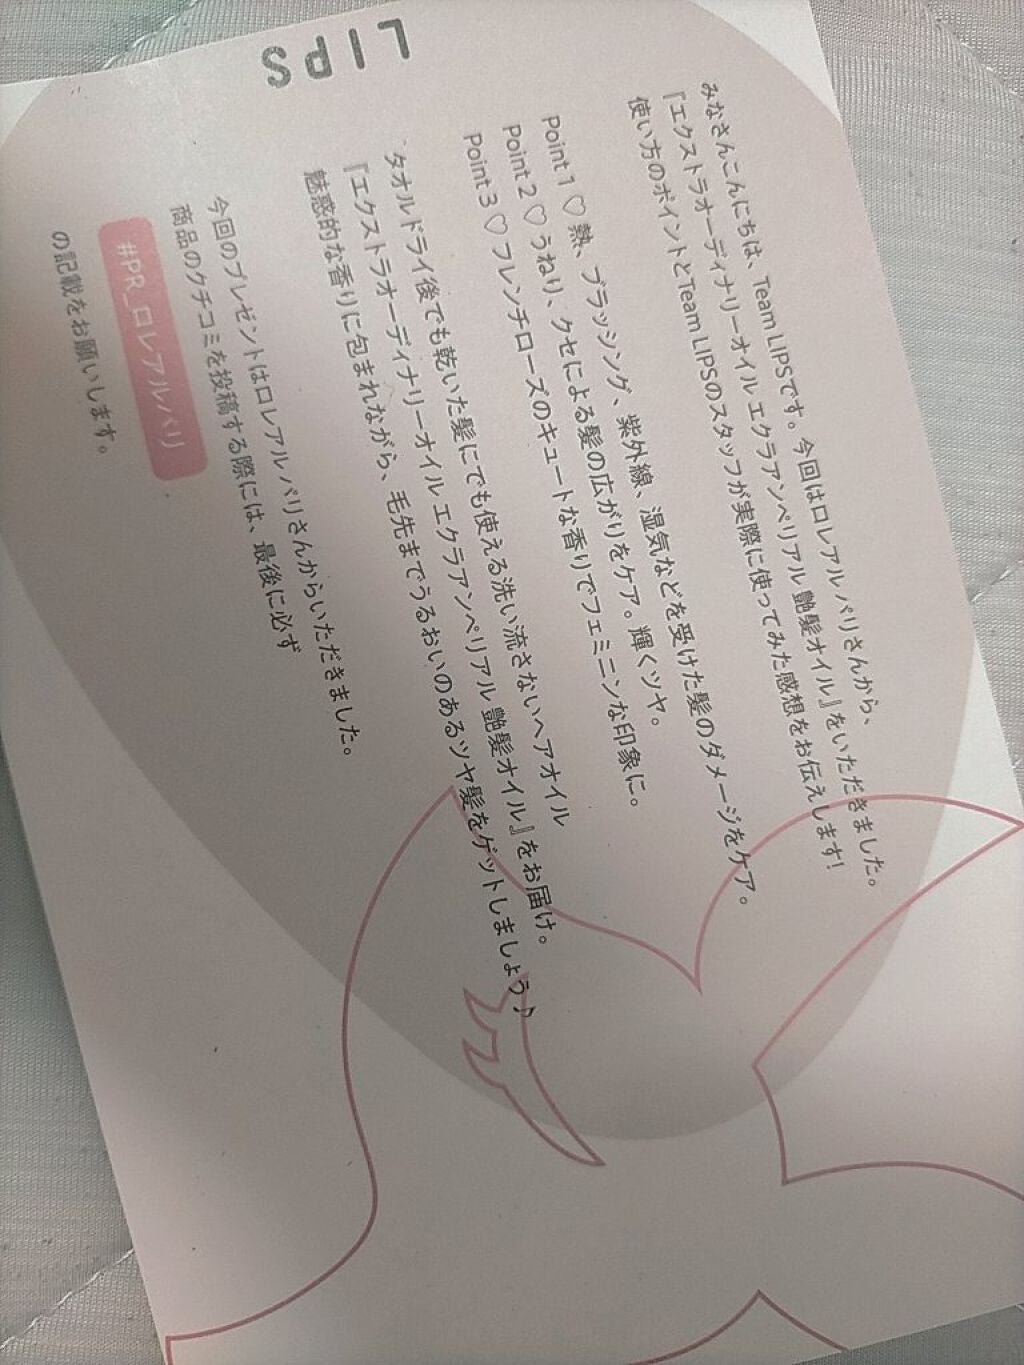 みなさんこんにちは、Team LIPSです。今回はロレアル パリさんから、
『エクストラオーディナリーオイル エクラアンペリアル 艶髪オイル』をいただきました。
使い方のポイントとTeam LIPSのスタッフが実際に使ってみた感想をお伝えします!
Point 1 ♡ 熱、ブラッシング、紫外線、湿気などを受けた髪のダメージをケア。
Point 2 ♡ うねり、クセによる髪の広がりをケア。輝くツヤ。
Point 3 ♡ フレンチローズのキュートな香りでフェミニンな印象に。
タオルドライ後でも乾いた髪にでも使える洗い流さないヘアオイル
『エクストラオーディナリーオイル エクラアンペリアル 艶髪オイル』をお届け。
魅惑的な香りに包まれながら、毛先までうるおいのあるツヤ髪をゲットしましょう♪
今回のプレゼントはロレアル パリさんからいただきました。
商品のクチコミを投稿する際には、最後に必ず
#PR_ロレアルパリ
の記載をお願いします。
LIPS